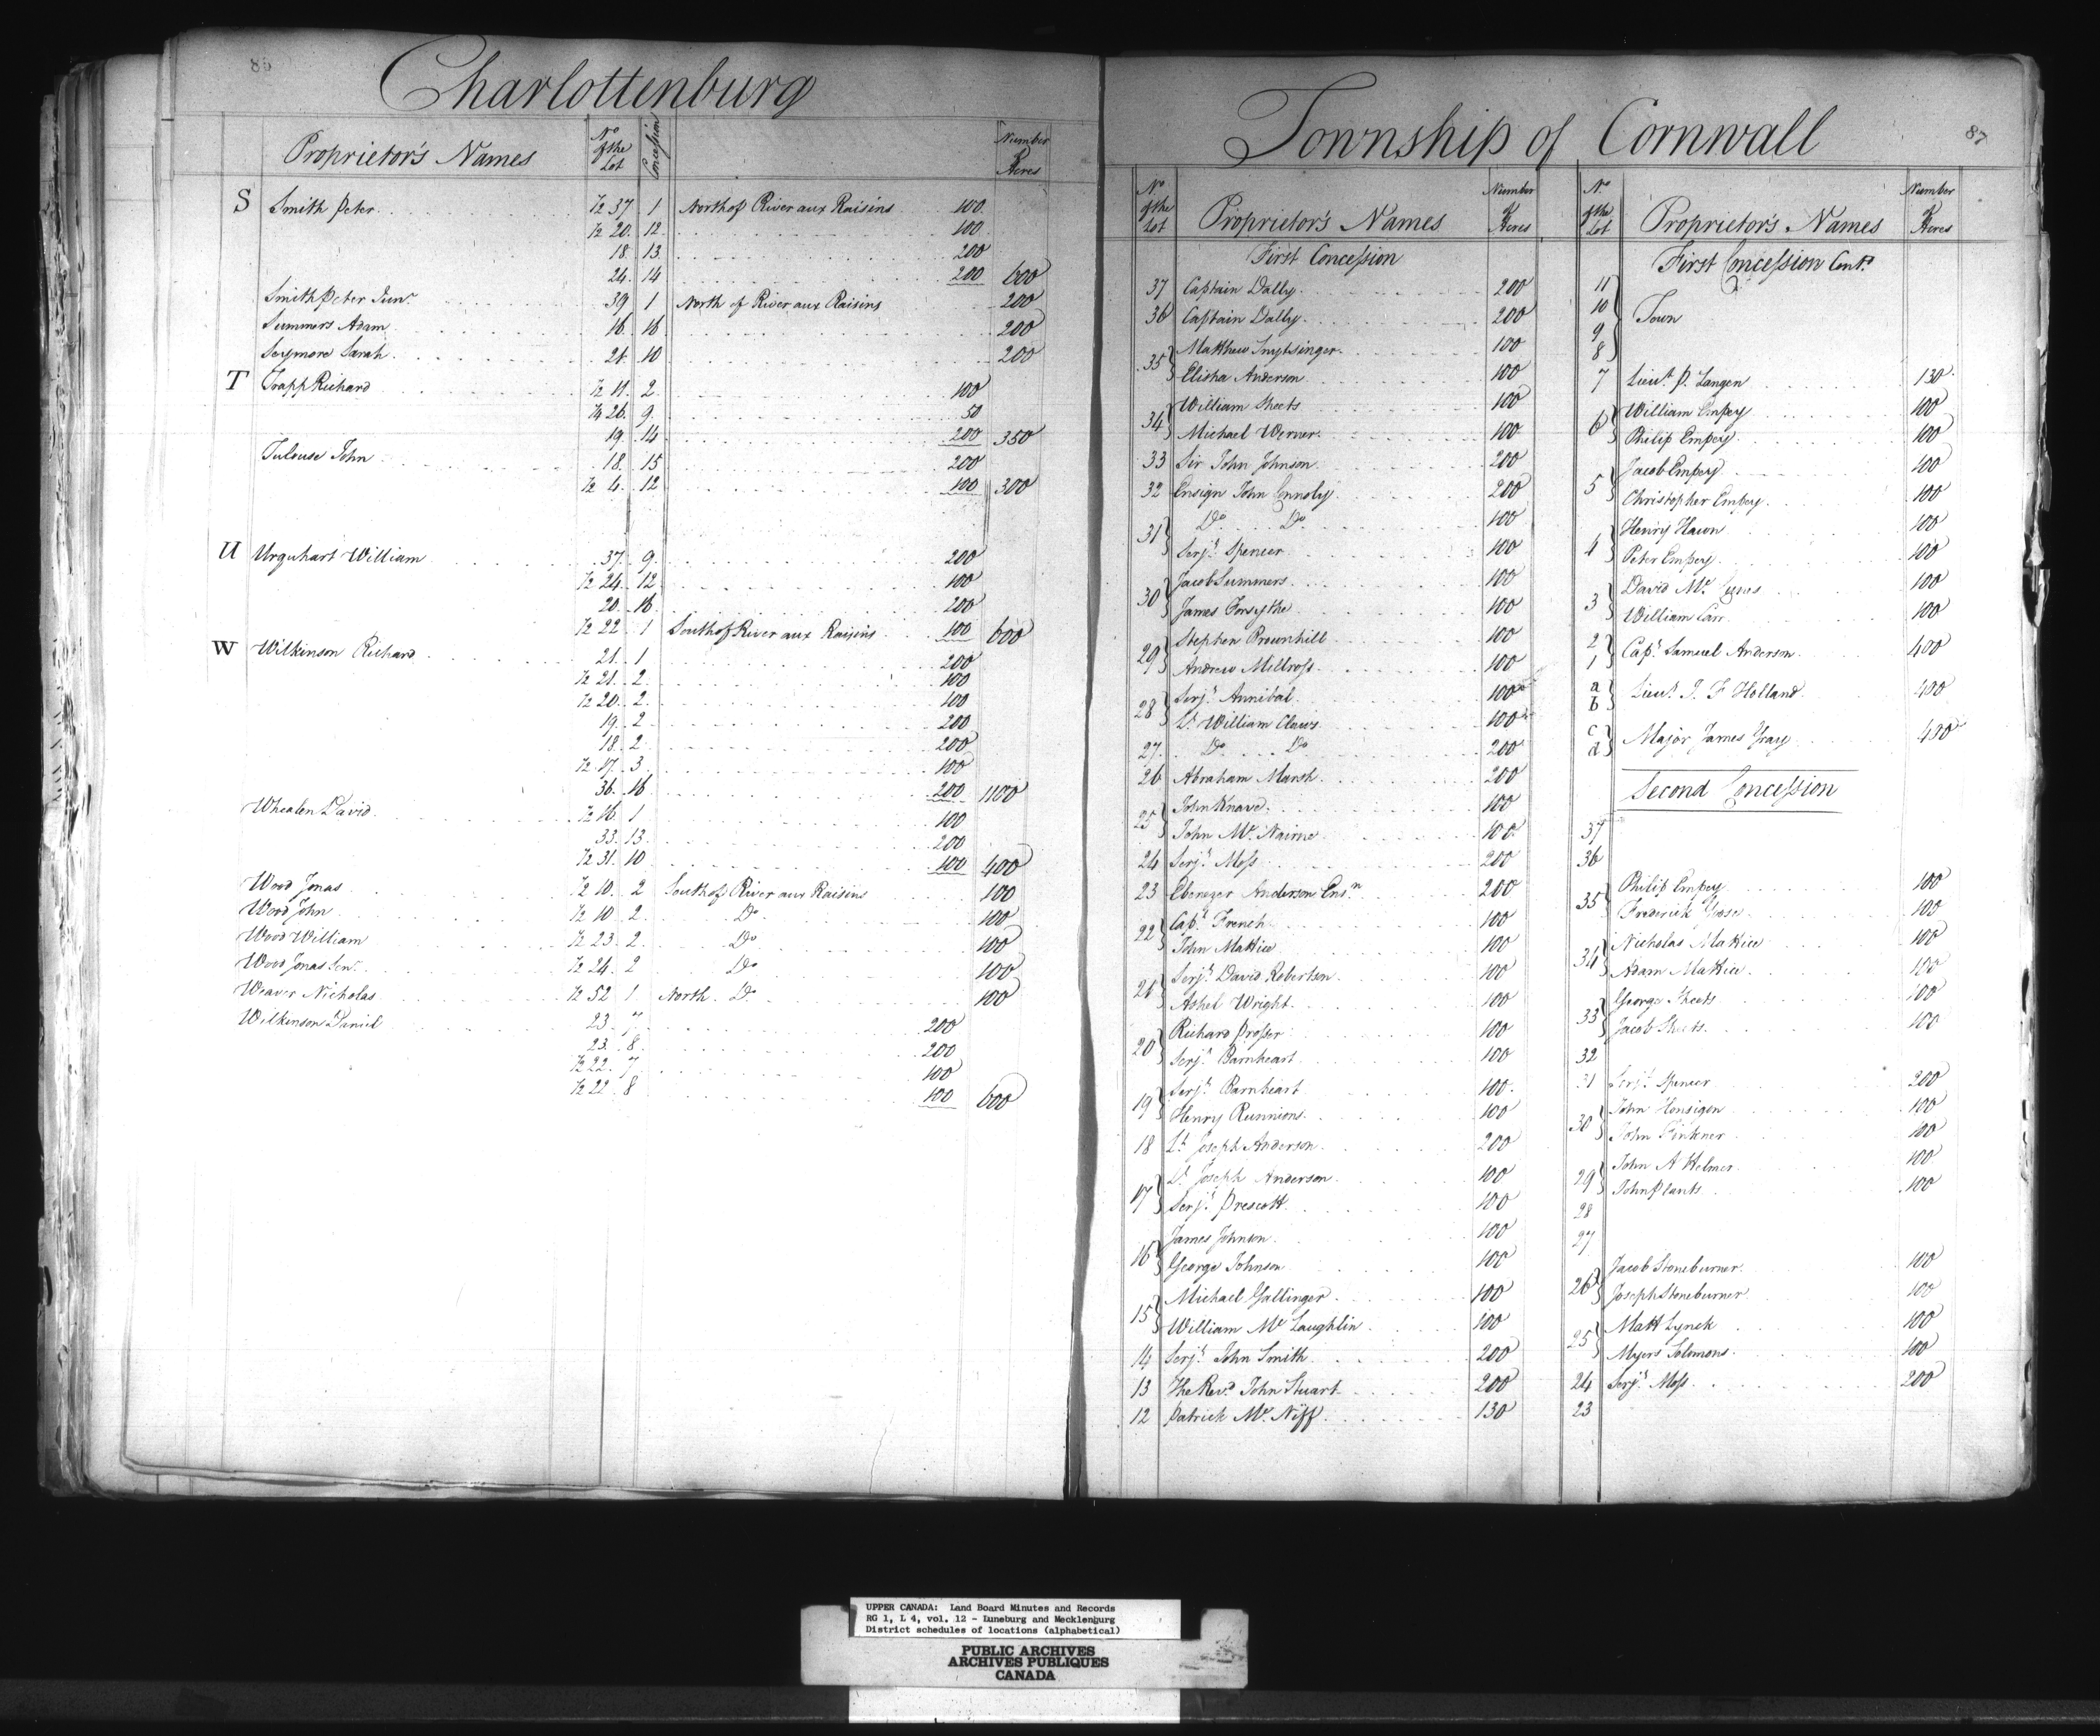 86
Charlottenburg
Proprietor's Names
No of the Lot
Concession
Number of Acres
S Smith Peter ½ 37 1 North of River aux Raisins 100
½ 20 12 100
18 13 200
24 14 200 600
Smith Peter Junr 39 1 North of River aux Raisins 200
Summers Adam 16 16 200
Seymore Sarah 21 10 200
T Trapp Richard ½ 11 2 100
¼ 26 9 50
19 14 200 350
Tulouse John 18 15 200
½ 4 12 100 300
U Urquhart William 37 9 200
½ 24 12 100
20 16 200
½ 22 1 South of River aux Raisins 100 600
W Wilkinson Richard 21 1 200
½ 21 2 100
½ 20 2 100
19 2 200
18 2 200
½ 17 3 100
36 16 200 1100
Whealen David ½ 16 1 100
33 13 200
½ 31 10 100 400
Wood Jonas ½ 10 2 South of River aux Raisins 100
Wood John ½ 10 2 Do 100
Wood William ½ 23 2 Do 100
Wood Jonas Senr ½ 24 2 Do 100
Weaver Nicholas ½ 52 1 North Do 100
Wilkinson Daniel 23 7 200
23 8 200
½ 22 7 100
½ 22 8 100 600
87
Township of Cornwall
No of the Lot
Proprietor's Names
Number of Acres
First Concession
37 Captain Dally 200
36 Captain Dally 200
35 Matthew Snytsinger 100
Elisha Anderson 100
34 William Sheets 100
Michael Werner 100
33 Sir John Johnson 200
32 Ensign John Connoly 200
31 Do Do 100
Serjt Spencer 100
30 Jacob Summers 100
James Forsythe 100
29 Stephen Brownhill 100
Andrew Millross 100
28 Serjt Annibal 100
Lt William Claws 100
27 Do Do 200
26 Abraham Marsh 200
25 John Knave 100
John Mc Nairne 100
24 Serjt Moss 200
23 Ebenezer Anderson Ensn 200
22 Capt French 100
John Mattice 100
21 Serjt David Robertson 100
Ashel Wright 100
20 Richard Prosser 100
Serjt Barnheart 100
19 Serjt Barnheart 100
Henry Runnions 100
18 Lt Joseph Anderson 200
17 Lt Joseph Anderson 100
Serjt Prescott 100
16 James Johnson 100
George Johnson 100
15 Michael Gallinger 100
William Mc Laughlin 100
14 Serjt John Smith 200
13 The Revd John Stuart 200
12 Patrick Mc Niff 130
No of the Lot
Proprietor's Names
Number of Acres
First Concession Contd
11
10 Town
9
8
7 Lieut P. Langen 130
6 William Empey 100
Philip Empey 100
5 Jacob Empey 100
Christopher Empey 100
4 Henry Hawn 100
Peter Empey 100
3 David Mc 100
William Carr 100
2
1 Capt Samuel Anderson 400
a
b Lieut J. F Holland 400
c
d Major James Gray 400
Second Concession
37
36
35 Philip Empey 100
Frederick Goose 100
34 Nicholas Mattice 100
Adam Mattice 100
33 George Sheets 100
Jacob Sheets 100
32
31 Serjt Spencer 200
30 John Honsigen 100
John Finkner 100
29 John A Helmer 100
John Plants 100
28
27
26 Jacob Stoneburner 100
Joseph Stoneburner 100
25 Matt Lynck 100
Myers Solomons 100
24 Serjt Moss 200
23
UPPER CANADA: Land Board Minutes and Records
RG 1, L 4, vol. 12 - Luneburg and Mecklenburg
District schedules of locations (alphabetical)
PUBLIC ARCHIVES
ARCHIVES PUBLIQUES
CANADA